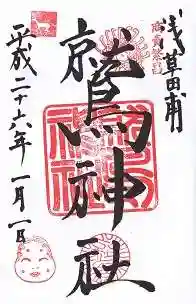 浅草田甫
鷲神社
平成二十六年一月一日